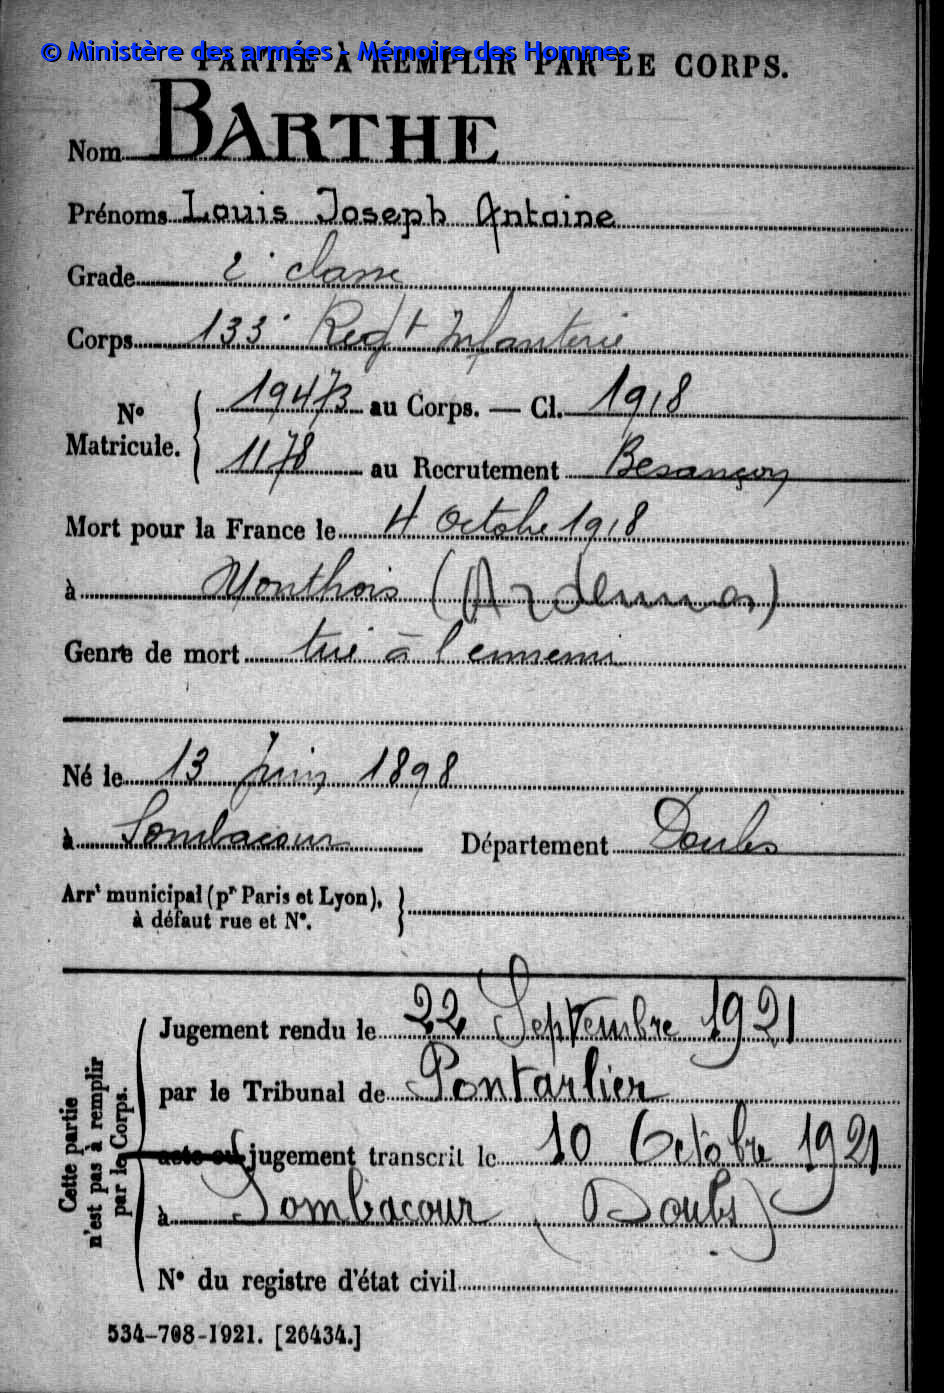 © Ministère des armées - Mémoire des Hommes
PARTIE À REMPLIR PAR LE CORPS.
Nom BARTHE
Prénoms Louis Joseph Antoine
Grade 2e classe
Corps 133e Regt Infanterie
No Matricule. { 19473 au Corps. — Cl. 1918
1178 au Recrutement Besançon
Mort pour la France le 4 Octobre 1918
à Monthois (Ardennes)
Genre de mort tué à l'ennemi
Né le 13 Juin 1898
à Sombacour Département Doubs
Arrt municipal (pr Paris et Lyon), à défaut rue et No. }
Cette partie n'est pas à remplir par le Corps.
Jugement rendu le 22 Septembre 1921
par le Tribunal de Pontarlier
acte ou jugement transcrit le 10 Octobre 1921
à Sombacour (Doubs)
No du registre d'état civil
534-708-1921. [26434.]